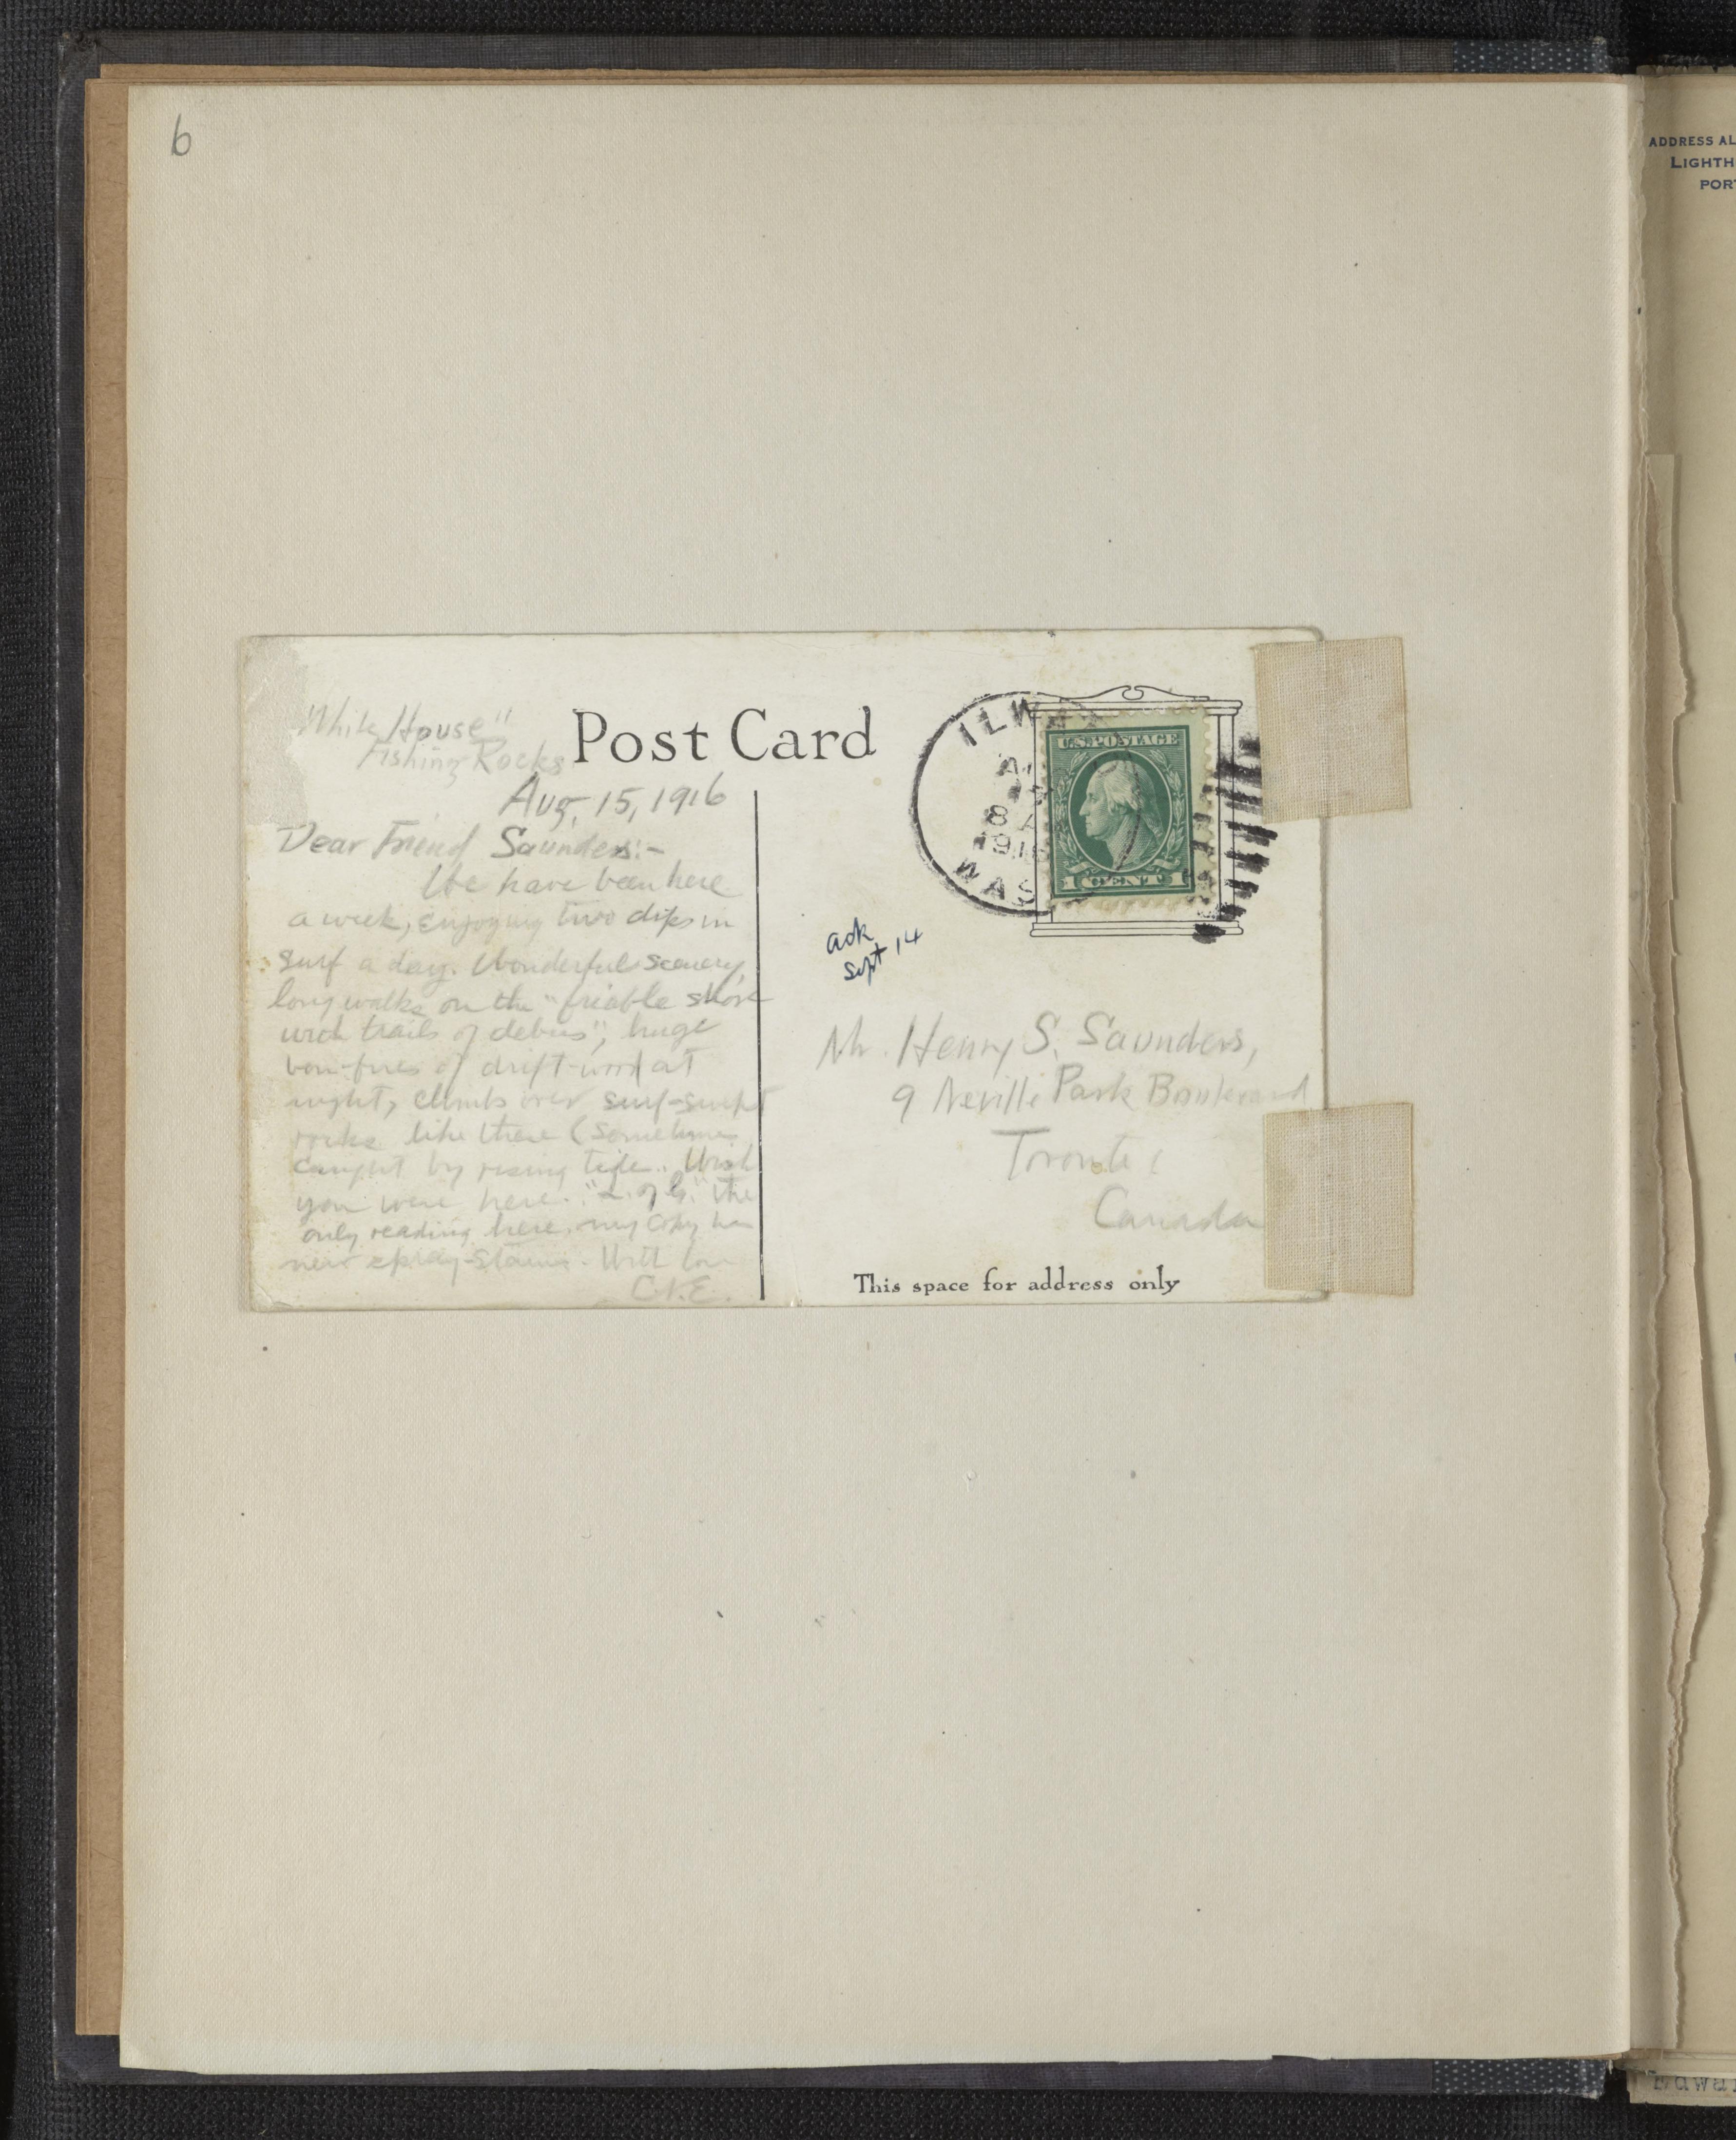 6
"White House"
Fishing Rocks
Post Card
Aug. 15, 1916
Dear Friend Saunders:-
We have been here
a week, enjoying two dips in
surf a day. Wonderful scenery,
long walks on the "friable shore
with trails of debris", huge
bon-fires of drift-wood at
night, climbs over surf-swept
rocks like these (sometimes
caught by rising tide. Wish
you were here. "L. of G." the
only reading here, my copy has
new spray-stains. With love
C.V.E.
ILWA
8 A
1916
WAS
U.S. POSTAGE
1 CENT 1
ack
Sept 14
Mr. Henry S. Saunders,
9 Neville Park Boulevard
Toronto
Canada
This space for address only
ADDRESS AL
LIGHTH
PORT